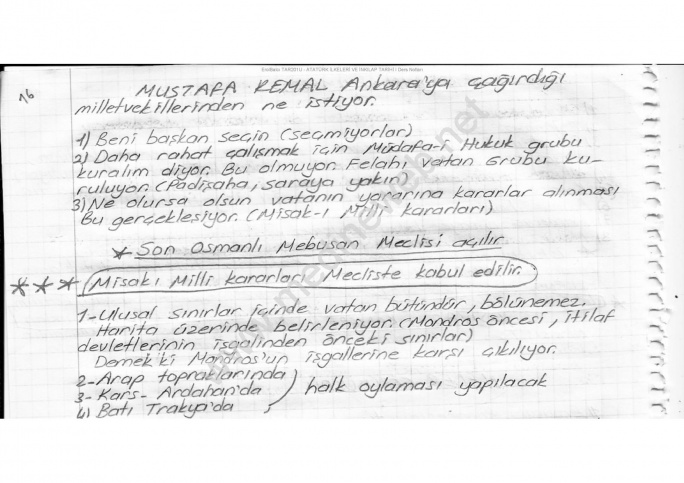 EminBaba TARZBTU - ATATÜRK İLKELERİ VE İNKILAP TARİHİ I Ders Notları
16
MUSTAFA KEMAL Ankara'ya çağırdığı
milletvekillerinden ne istiyor.
1) Beni başkan seçin (seçmiyorlar)
2) Daha rahat çalışmak için Müdafa-i Hukuk grubu
kuralım diyor. Bu olmuyor. Felahı vatan Grubu ku-
ruluyor. (Padişaha, saraya yakın)
3) Ne olursa olsun vatanın yararına kararlar alınması
Bu gerçekleşiyor. (Misak-ı Milli kararları)
* Son Osmanlı Mebusan Meclisi açılır
*** Misakı Milli kararları Mecliste kabul edilir.
1- Ulusal sınırlar içinde vatan bütündür, bölünemez.
Harita üzerinde belirleniyor. (Mondros öncesi, itilaf
devletlerinin işgalinden önceki sınırlar)
Demekki Mondros'un işgallerine karşı çıkılıyor.
2- Arap topraklarında
3- Kars- Ardahan'da ) halk oylaması yapılacak
4) Batı Trakya'da